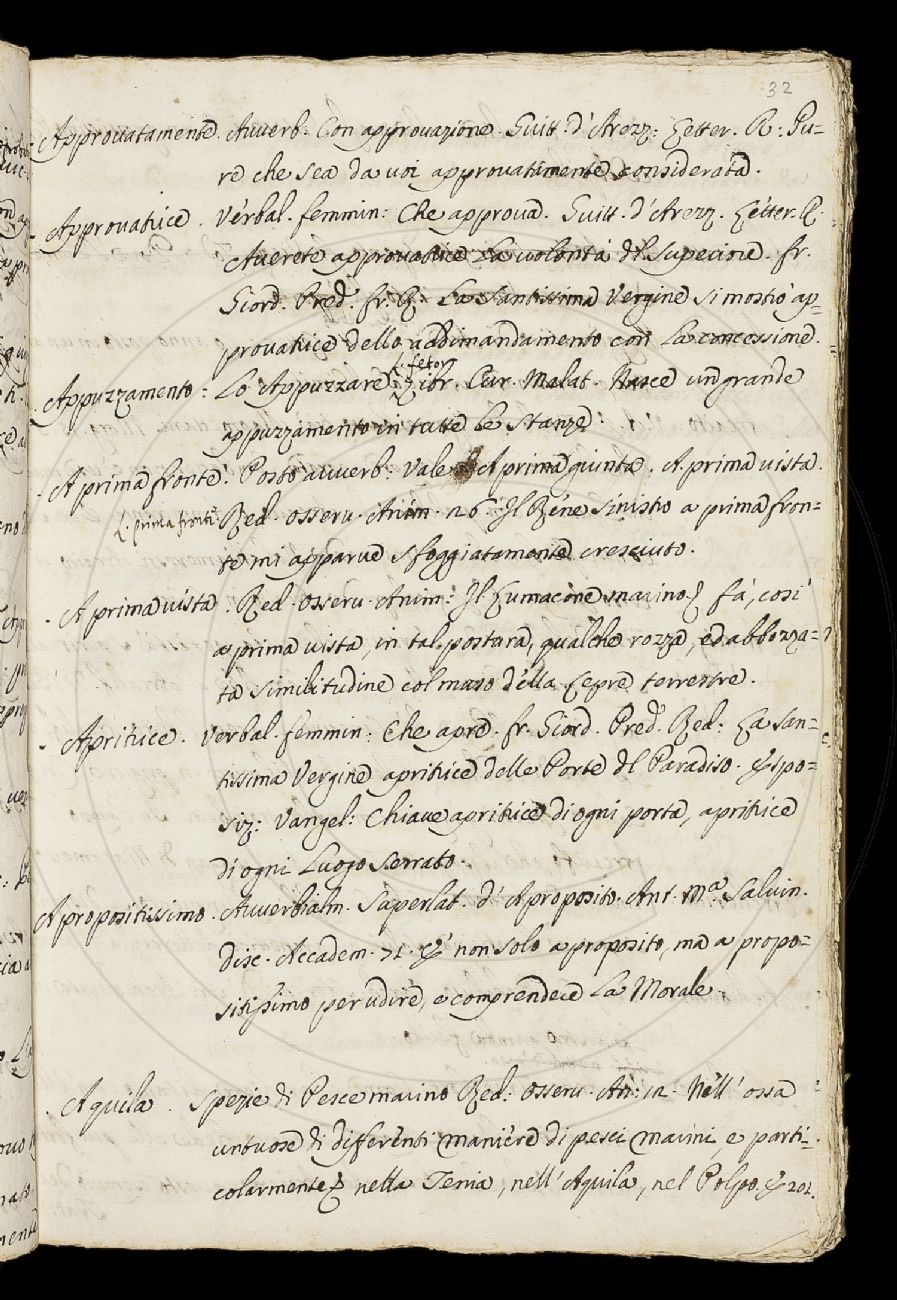 32
Approvatamente. Avverb. Con approvazione. Guitt. d'Arezz: Letter. R: Pu=
re che sea da voi approvatamente considerata.
Approvatrice. Verbal. femmin: Che approva. Guitt. d'Arezz. Letter. R.
Averete approvatrice La volontà del Superiore. fr.
Giord. Pred. fr. R. La Santissima Vergine si mostrò ap-
provatrice dello addimandamento con La concessione.
L. fetor
Appuzzamento: Lo Appuzzare. Libr. Cur. Malat. Nasce un grande
appuzzamento in tutte le Stanze.
A prima fronte: Posto avverb: Vale A prima giunta. A prima vista.
L. prima fronte Red. Osserv. Anim. 26 Il Rene sinistro a prima fron-
te mi apparve sfoggiatamente cresciuto.
A prima vista. Red. Osserv. Anim: Il Lumacone marino fà, così
a prima vista, in tal postura, qualche rozza, ed abbozza=
ta similitudine col muso della Lepre terrestre.
Apritrice. Verbal. femmin: Che apre. fr. Giord. Pred. Red: La San=
tissima Vergine apritrice delle Porte del Paradiso. Espo=
siz: Vangel: Chiave apritrice di ogni porta, apritrice
di ogni Luogo Serrato.
Apropositissimo. Avverbialm. Superlat. d'Aproposito. Ant. Mª. Salvin.
disc. Accadem. 71. E non solo a proposito, ma a propo=
sitissimo per udire, e comprendere La Morale.
Aquila. Spezie di Pesce marino Red: Osserv. An: 12. Nell'ossa
untuose di differenti maniere di pesci marini, e parti=
colarmente nella Tenia, nell'Aquila, nel Polpo. E 202.